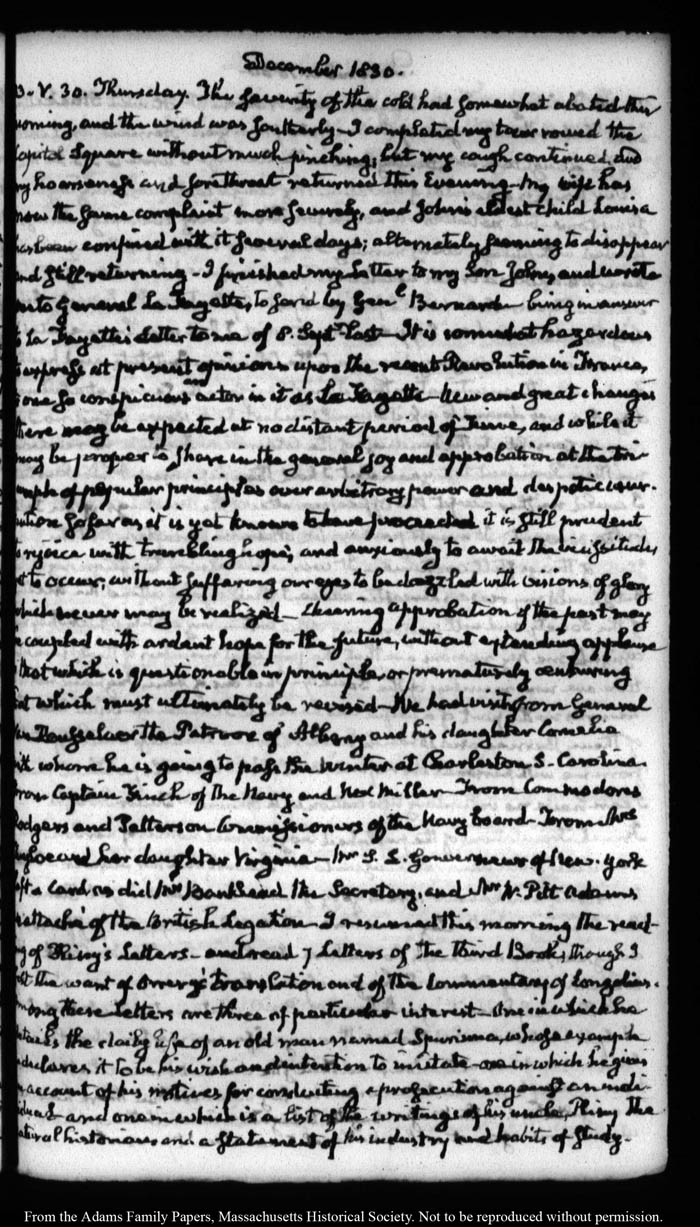 December 1830.
V. 30. Thursday. The severity of the cold had somewhat abated this
morning, and the wind was Southerly - I completed my tour round the
Capitol Square without much pinching; but my cough continued, and
my hoarseness and sore throat returned this Evening - My wife has
now the same complaint more severely, and John's eldest child Louisa
has been confined with it several days; alternately seeming to disappear
and still returning - I finished my Letter to my Son John, and wrote
one to General La Fayette, to send by Genl. Bernard - being in answer
to La Fayette's Letter to me of 8. Septr. last - It is somewhat hazardous
to express at present opinions upon the recent Revolution in France,
to one so conspicuous an actor in it as La Fayette - New and great changes
there may be expected at no distant period of Time, and while it
may be proper to share in the general joy and approbation at the tri-
umph of popular principles over arbitrary power and despotic usur-
pation so far as it is yet known to have proceeded it is still prudent
to rejoice with trembling hopes, and anxiously to await the vicissitudes
yet to occur; without suffering our eyes to be dazzled with visions of glory
which never may be realized - Cheering approbation of the past may
be coupled with ardent hope for the future, without extending applause
to that which is questionable in principle, or prematurely censuring
that which must ultimately be revised - We had visits from General
Van Rensselaer the Patroon of Albany and his daughter Cornelia
with whom he is going to pass the winter at Charleston S. Carolina.
From Captain Finch of the Navy and Miller - From Commodores
Rodgers and Patterson Commissioners of the Navy board - From Mrs
and her daughter Virginia - Mr S. L. Gouverneur of New-York
left a Card as did Mr Bankhead the Secretary, and Mr W. Pitt Adams
attaché of the British Legation - I resumed this morning the read-
ing of Pliny's Letters - and read 7 Letters of the third Book, though I
the want of Orrery's translation and of the Commentary of Longolius.
Among these Letters are three of particular interest - One in which he
details the daily life of an old man named Spurinna, whose example
he declares it to be his wish and intention to imitate - one in which he gives
an account of his motives for conducting a prosecution against an indi-
vidual - and one in which is a list of the writings of his uncle, Pliny the
natural historian, and a Statement of his industry and habits of Study.
From the Adams Family Papers, Massachusetts Historical Society. Not to be reproduced without permission.